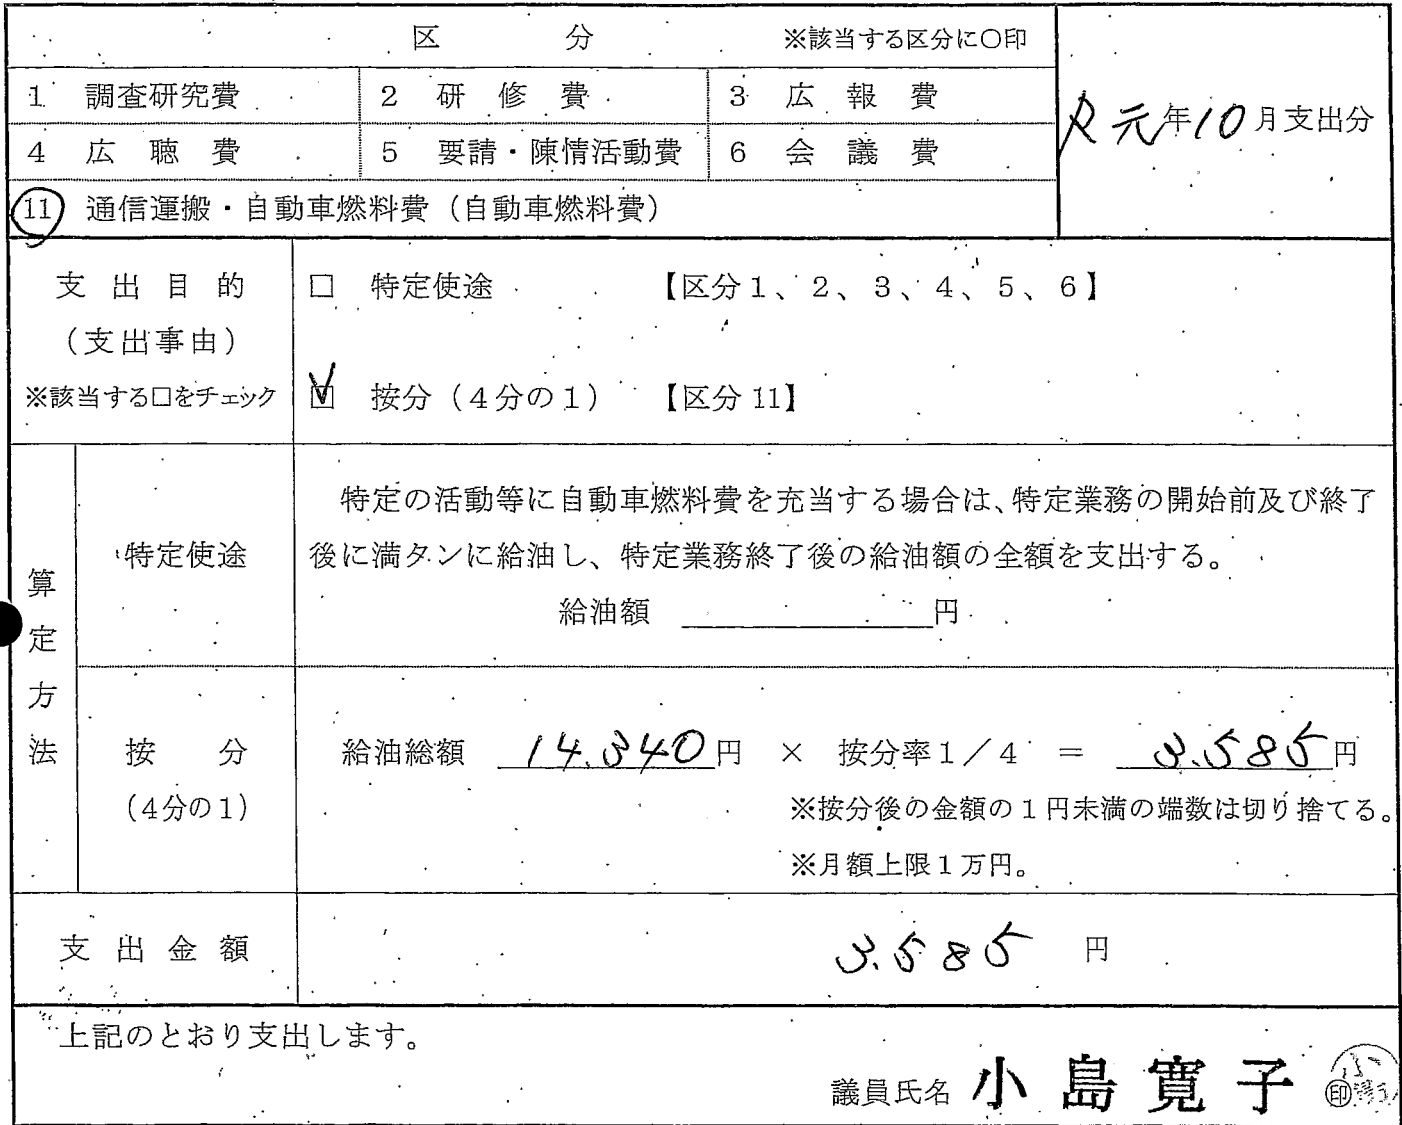 区 分 ※該当する区分に〇印
1 調査研究費 2 研修費 3 広報費
R元年10月支出分
4 広聴費 5 要請・陳情活動費 6 会議費
11 通信運搬・自動車燃料費(自動車燃料費)
支出目的
(支出事由)
※該当する□をチェック
□ 特定使途 【区分1、2、3、4、5、6】
☑ 按分(4分の1) 【区分11】
算定方法
特定使途
特定の活動等に自動車燃料費を充当する場合は、特定業務の開始前及び終了
後に満タンに給油し、特定業務終了後の給油額の全額を支出する。
給油額 円
按分
(4分の1)
給油総額 14.340円 × 按分率1/4 = 3.585円
※按分後の金額の1円未満の端数は切り捨てる。
※月額上限1万円。
支出金額 3.585 円
上記のとおり支出します。
議員氏名 小島寛子 印